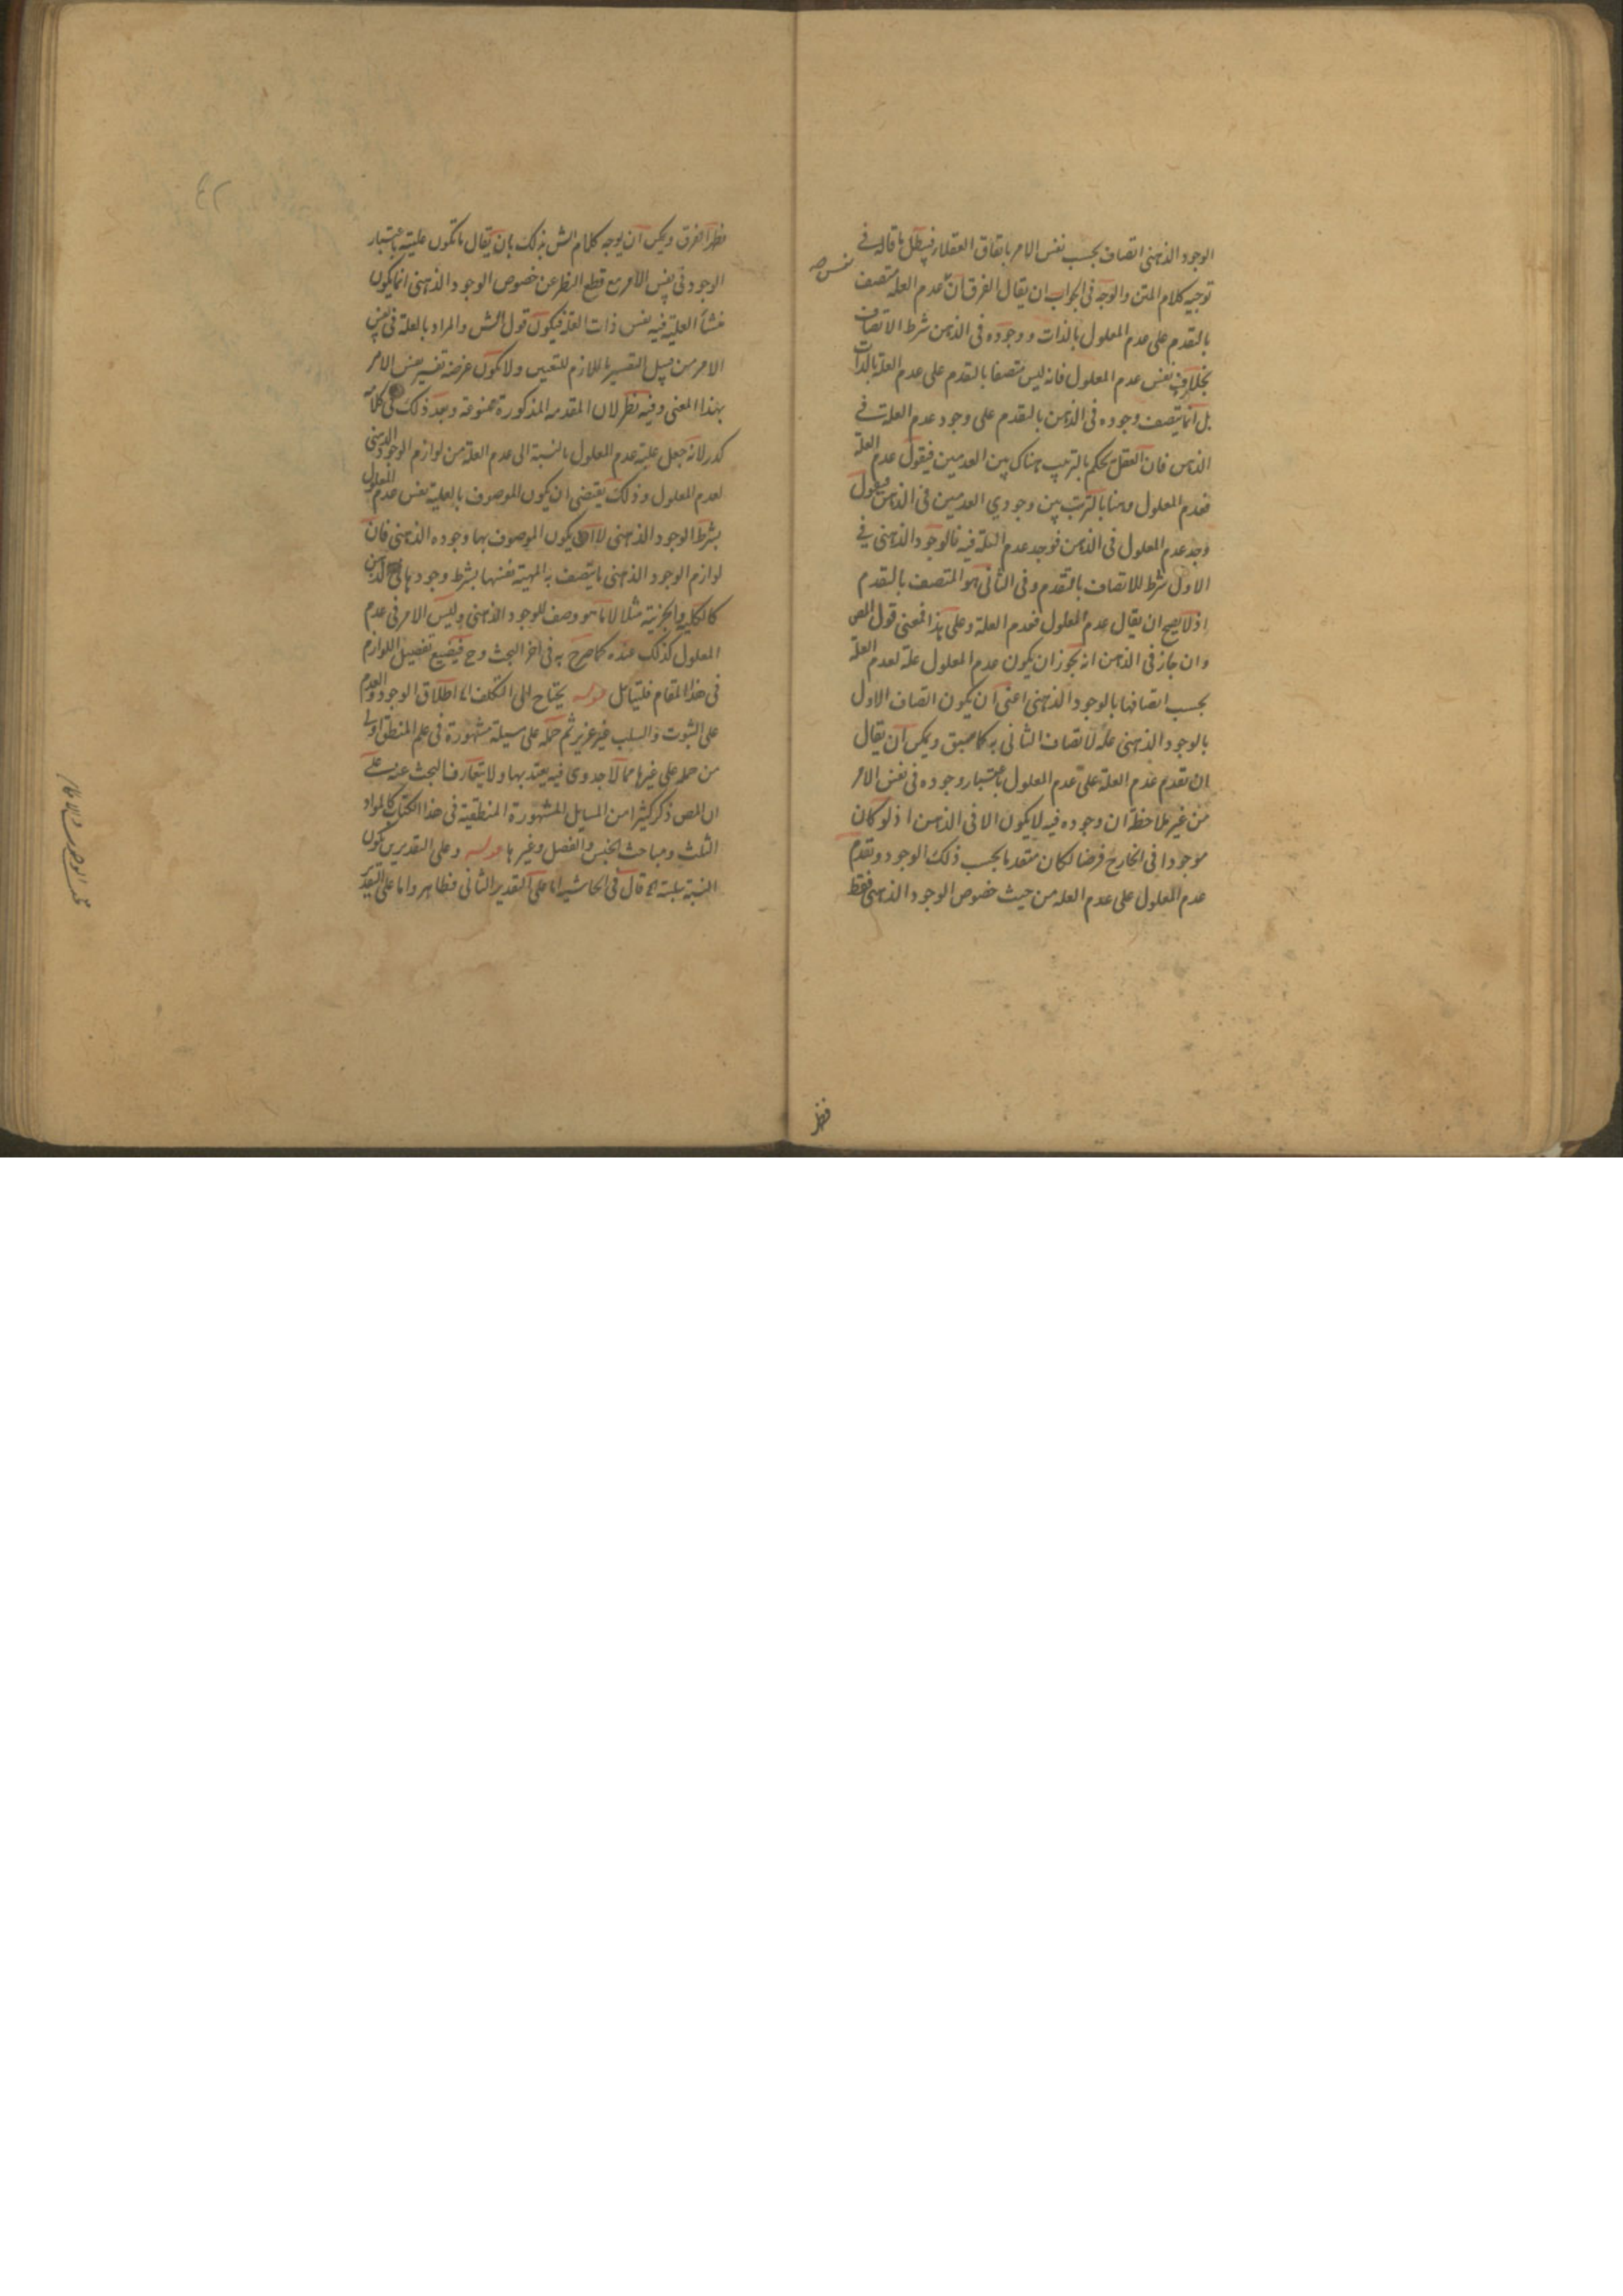 الوجود الذهنى اتصاف بحسب نفس الامر باتفاق العقلاء فيبطل ما قاله فى
توجيه كلام المتن والوجه فى الجواب ان يقال الفرق ان عدم العلة متصف
نفس صح
بالتقدم على عدم المعلول بالذات ووجوده فى الذهن شرط الاتصاف
بخلاف نفس عدم المعلول فانه ليس متصفا بالتقدم على عدم العلة بالذات
بل انما يتصف وجوده فى الذهن بالتقدم على وجود عدم العلة فى
الذهن فان العقل يحكم بالترتيب هناك بين العدمين فيقول عدم العلة
فعدم المعلول وهنا بالترتب بين وجودي العدمين فى الذهن فيقول
وجد عدم المعلول فى الذهن فوجد عدم العلة فيه فالوجود الذهنى فى
الاول شرط للاتصاف بالتقدم وفى الثانى هو المتصف بالتقدم
اذ لا يصح ان يقال عدم المعلول فعدم العلة وعلى هذا فمعنى قول المص
وان جاز فى الذهن انه يجوز ان يكون عدم المعلول علة لعدم العلة
بحسب اتصافها بالوجود الذهنى اعنى ان يكون اتصاف الاول
بالوجود الذهنى علة لاتصاف الثانى به كما سبق ويمكن ان يقال
ان تقدم عدم العلة على عدم المعلول باعتبار وجوده فى نفس الامر
من غير ملاحظة ان وجوده فيه لا يكون الا فى الذهن اذ لو كان
موجودا فى الخارج فرضا لكان متقدما بحسب ذلك الوجود وتقدم
عدم المعلول على عدم العلة من حيث خصوص الوجود الذهنى فقط
فظهر
٤٢
فظهر الفرق ويمكن ان يوجه كلام الش بذلك بان يقال ما تكون عليته باعتبار
الوجود فى نفس الامر مع قطع النظر عن خصوص الوجود الذهنى انما يكون
منشأ العلية فيه نفس ذات العلة فيكون قول الش والمراد بالعلة فى نفس
الامر من قبيل التفسير باللازم للتعيين ولا يكون غرضه تفسير نفس الامر
بهذا المعنى وفيه نظر لان المقدمة المذكورة ممنوعة وبعد ذلك فى كلامه
كدر لانه جعل علية عدم المعلول بالنسبة الى عدم العلة من لوازم الوجود الذهنى
لعدم المعلول وذلك يقتضى ان يكون الموصوف بالعلية نفس عدم المعلول
بشرط الوجود الذهنى لا ان يكون الموصوف بها وجوده الذهنى فان
لوازم الوجود الذهنى ما يتصف به المهية نفسها بشرط وجودها فى الذهن
كالكلية والجزئية مثلا لا ما هو وصف للوجود الذهنى وليس الامر فى عدم
المعلول كذلك عنده كما صرح به فى اخر البحث وح فيضيع تفصيل اللوازم
فى هذا المقام فليتامل قوله يحتاج الى التكلف اما اطلاق الوجود والعدم
على الثبوت والسلب فغير عزيز ثم حمله على مسيلة مشهورة فى علم المنطق اولى
من حمله على غيرها مما لا جدوى فيه يعتد بها ولا يتعارف البحث عنه على
ان المص ذكر كثيرا من المسايل المشهورة المنطقية فى هذا الكتاب كالمواد
الثلث ومباحث الجنس والفصل وغيرها قوله وعلى التقديرين يكون
النسبة سلبية قال فى الحاشية اما على التقدير الثانى فظاهر واما على التقدير